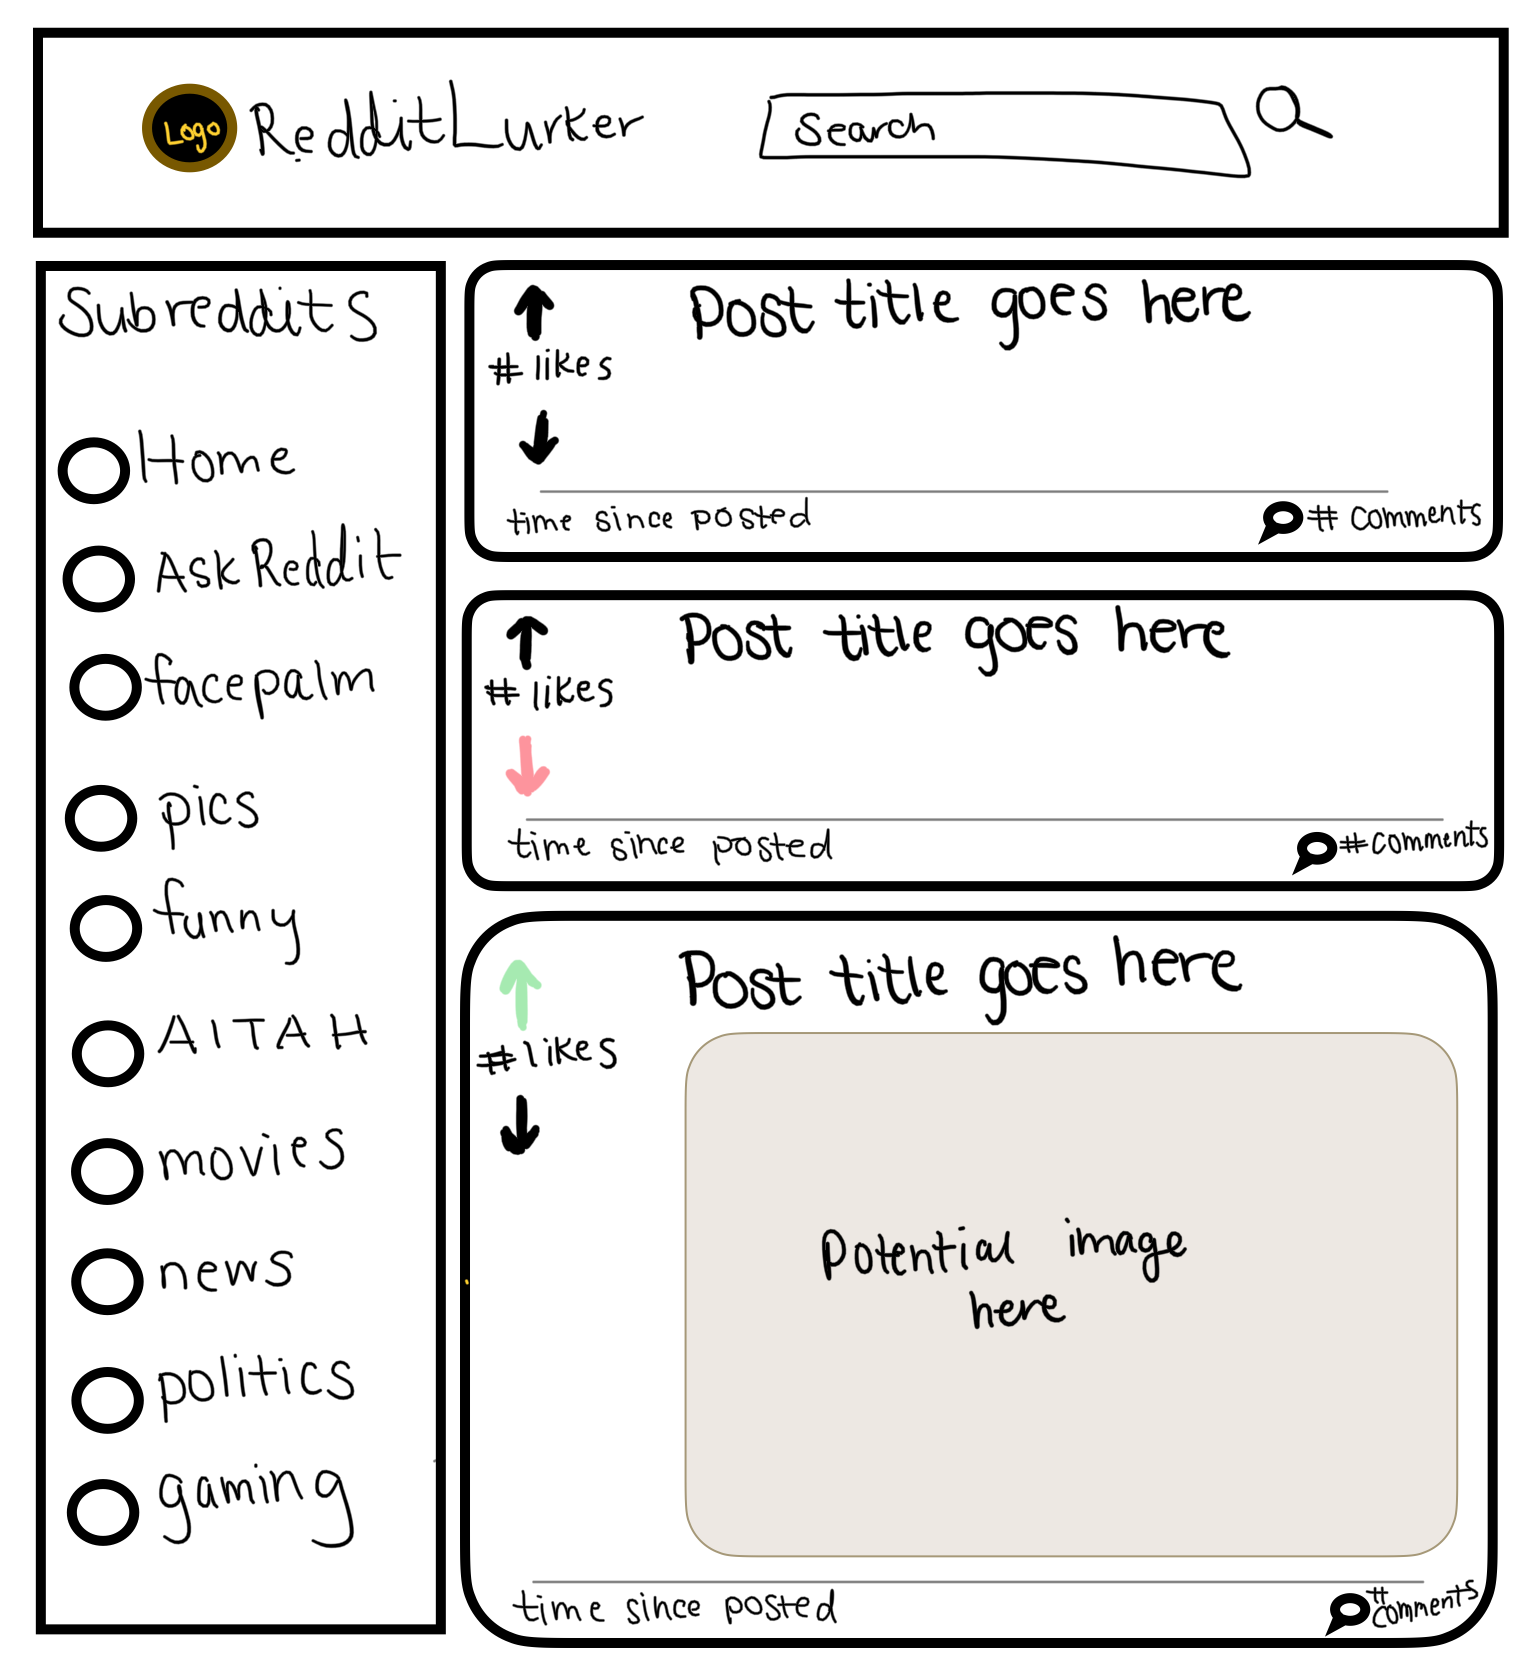 Logo RedditLurker Search
Subreddits
Home
AskReddit
facepalm
pics
funny
AITAH
movies
news
politics
gaming
Post title goes here
# likes
time since posted # comments
Post title goes here
# likes
time since posted # comments
Post title goes here
# likes
Potential image
here
time since posted #
comments